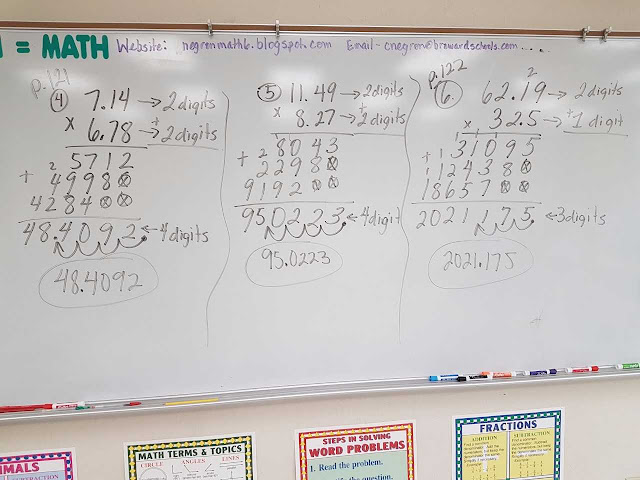 = MATH Website: negronmath6.blogspot.com Email- cnegron@browardschools.com....
p.121
④ 7.14 → 2 digits
x 6.78 → + 2 digits
2
5712
+ 49980
428400
48.4092. ← 4 digits
48.4092
⑤ 11.49 → 2 digits
x 8.27 → + 2 digits
2
8043
+ 22980
919200
95.0223. ← 4 digit
95.0223
p.122
2
⑥. 62.19 → 2 digits
x 32.5 → + 1 digit
1 1
31095
+ 1 124380
1865700
2021.175. ← 3 digits
2021.175
MATH TERMS & TOPICS
CIRCLE ANGLES LINES
STEPS IN SOLVING
WORD PROBLEMS
1. Read the problem.
the question.
FRACTIONS
ADDITION SUBTRACTION